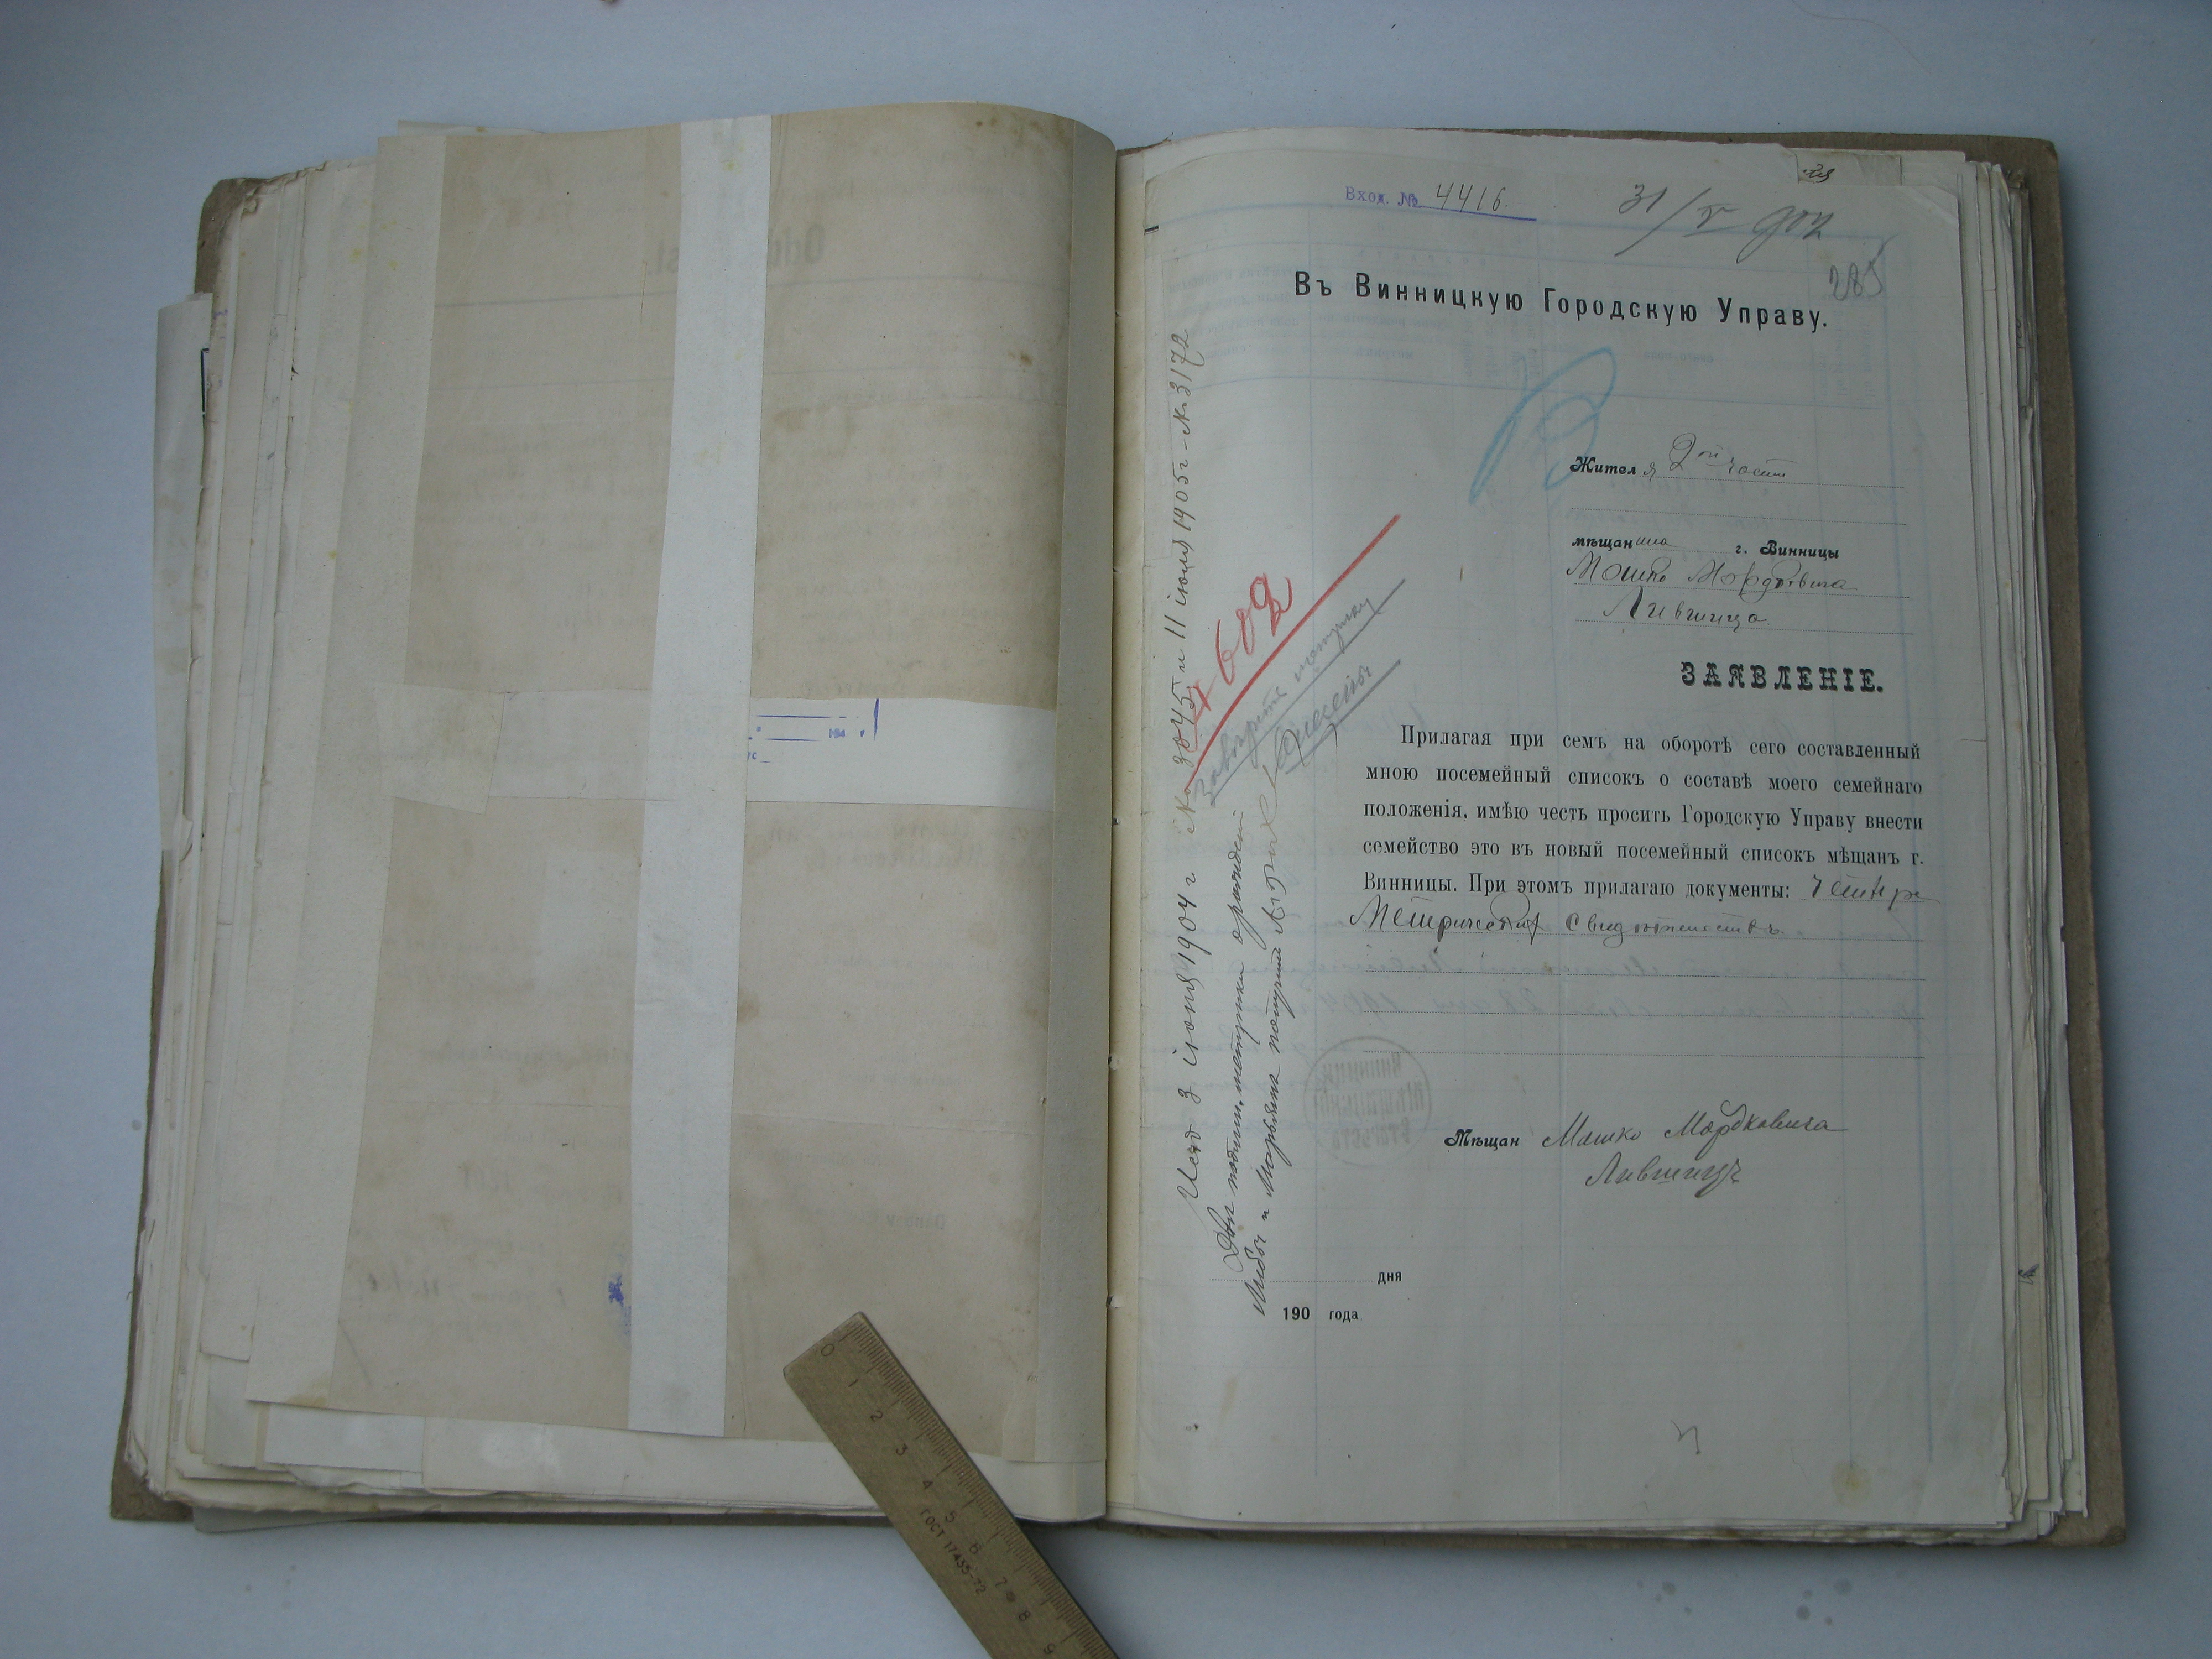 Вход. № 4416.
31/V 902
285
Въ Винницкую Городскую Управу.
Жителя 2ой части
мѣщанина г. Винницы
Мошко Мордковича
Лившица
ЗАЯВЛЕНІЕ.
Прилагая при семъ на оборотѣ сего составленный
мною посемейный списокъ о составѣ моего семейнаго
положенія, имѣю честь просить Городскую Управу внести
семейство это въ новый посемейный списокъ мѣщанъ г.
Винницы. При этомъ прилагаю документы:
Метрическихъ свидѣтельствъ
Мѣщан Мошко Мордковича
Лившицъ
дня
190 года
602
3 іюня 1904 г № 3045 и 11 іюля 1905 г - № 3172
метрики о рожденіи
и Марьями получилъ
0 1 2 3 4 5 6 7 8 9
ГОСТ 17435-72